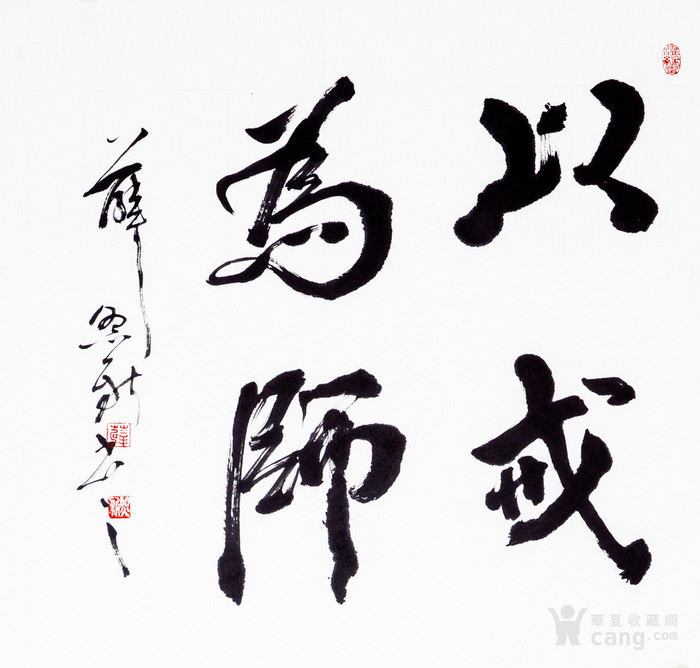 以戒
為師
薛恩勳書
華夏收藏網
cang.com